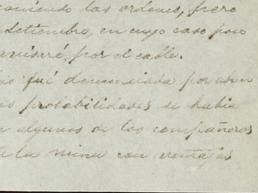 las ordenes, pero
Setiembre, en cuyo caso
por el cable.
fué denunciada por
probabilidades se habia
algunos de los compañeros
a la mina con ventajas